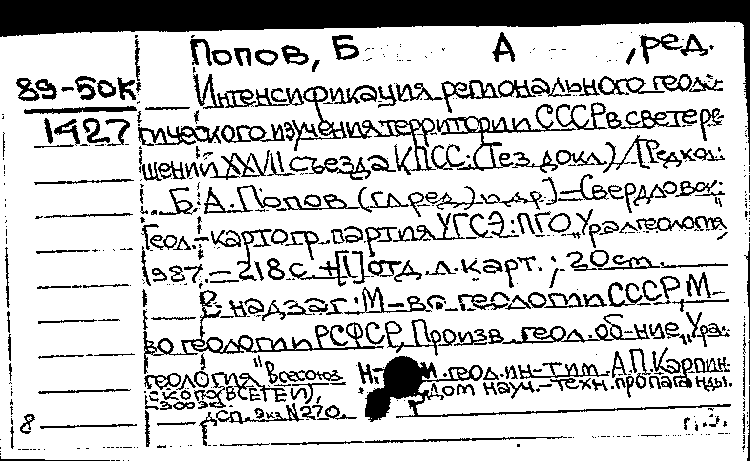 Попов, Б А , ред.
89-50К Интенсификация регионального геоло-
1427 гического изучения территории СССР в свете ре-
шений XXVII съезда КПСС: (Тез. докл.) / [Редкол.:
Б. А. Попов (гл. ред.) и др.] - Свердловск:
Геол.-картогр. партия УГСЭ: ПГО "Уралгеология",
1987. - 218 с. + [1] отд. л. карт.; 20 см.
В надзаг.: М-во геологии СССР, М-
во геологии РСФСР, Произв. геол. об-ние "Урал
геология" Всесоюз Н. И. геол. ин-т им. А.П. Карпин
ского (ВСЕГЕИ), Дом науч.-техн. пропаганды.
ДСП. Экз N 270.
8